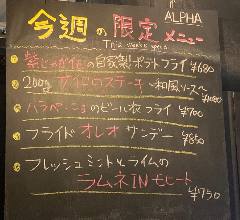 ALPHA
今週の限定メニュー
This week's special
紫じゃが徳の自家製ポテトフライ ¥680
200g サイコロステーキ 〜和風ソース〜
ハラペーニョのビール衣フライ ¥700
フライドオレオサンデー ¥850
フレッシュミントとライムの
ラムネINモヒート ¥750